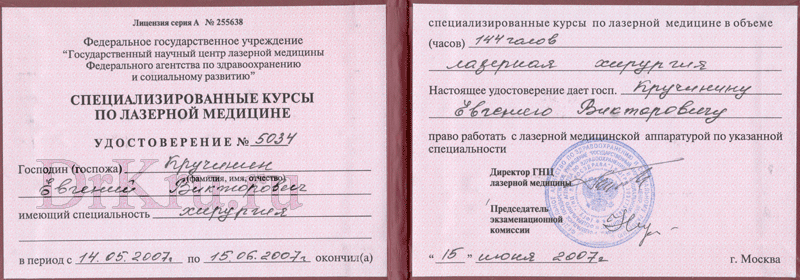 Лицензия серия А № 255638
Федеральное государственное учреждение
“Государственный научный центр лазерной медицины
Федерального агентства по здравоохранению
и социальному развитию”
СПЕЦИАЛИЗИРОВАННЫЕ КУРСЫ
ПО ЛАЗЕРНОЙ МЕДИЦИНЕ
УДОСТОВЕРЕНИЕ № 5034
Господин (госпожа) Кручинин
(фамилия, имя, отчество)
Евгений Викторович
имеющий специальность хирургия
в период с 14.05.2007г по 15.06.2007г окончил(а)
DrKru.ru
специализированные курсы по лазерной медицине в объеме
(часов) 144 часов
лазерная хирургия
Настоящее удостоверение дает госп. Кручинину
Евгению Викторовичу
право работать с лазерной медицинской аппаратурой по указанной
специальности
Директор ГНЦ
лазерной медицины
Председатель
экзаменационной
комиссии
“ 15 ” июня 2007г г. Москва